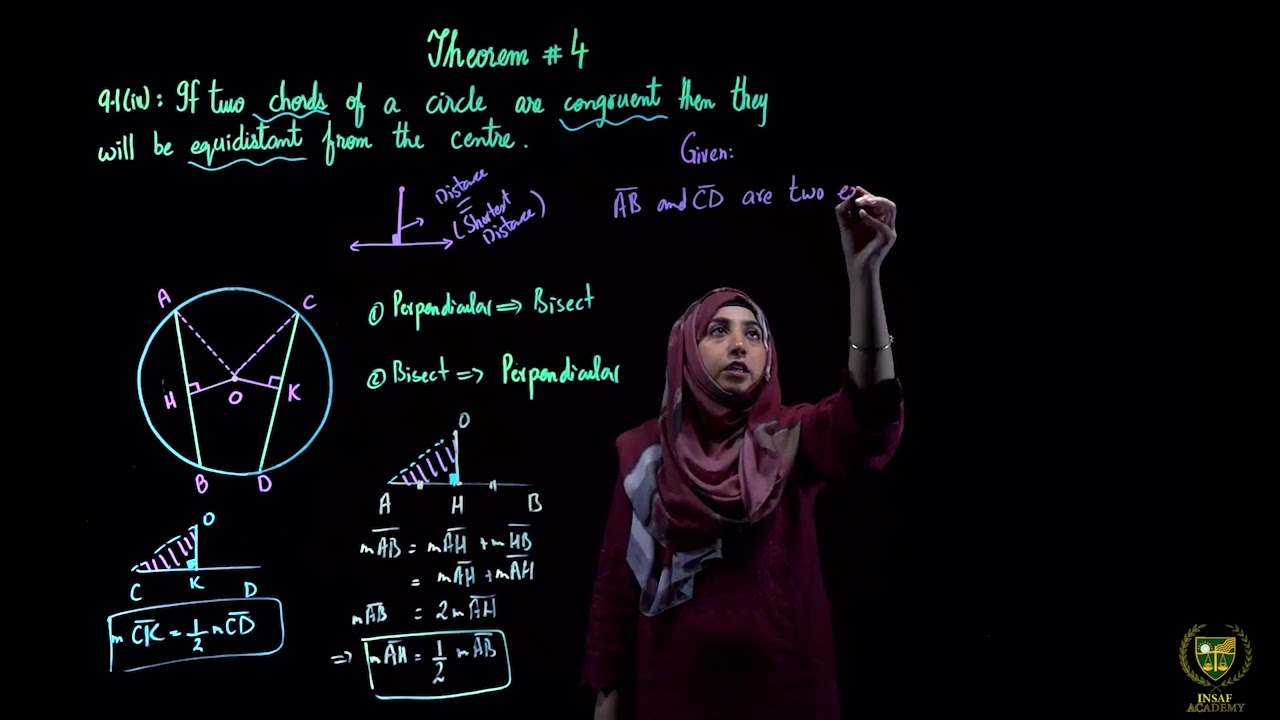 Theorem # 4
9.1(iv): If two chords of a circle are congruent then they
will be equidistant from the centre.
Given:
A̅B̅ and C̅D̅ are two
Distance
=
(Shortest
Distance)
A
C
H
O
K
B
D
① Perpendicular ⇒ Bisect
② Bisect ⇒ Perpendicular
O
A H B
mA̅B̅ = mA̅H̅ + mH̅B̅
= mA̅H̅ + mA̅H̅
mA̅B̅ = 2mA̅H̅
⇒ mA̅H̅ = 1/2 mA̅B̅
O
C K D
mC̅K̅ = 1/2 mC̅D̅
INSAF
ACADEMY